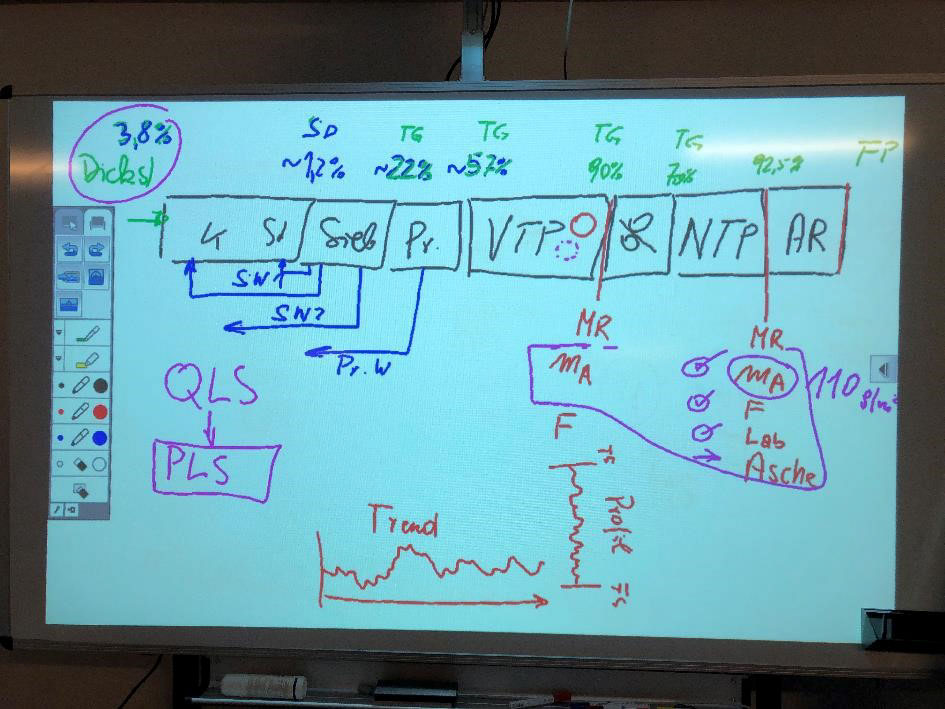 3,8%
Dickst
SD
~1,2%
TG
~22%
TG
~57%
TG
90%
TG
70%
92,5%
FP
K St Sieb Pr. VTP NTP AR
SW1
SW2
Pr.W
QLS
PLS
MR
mA
F
MR
mA
F
Lab
Asche
110 g/m²
Trend
TS
Profil
FS